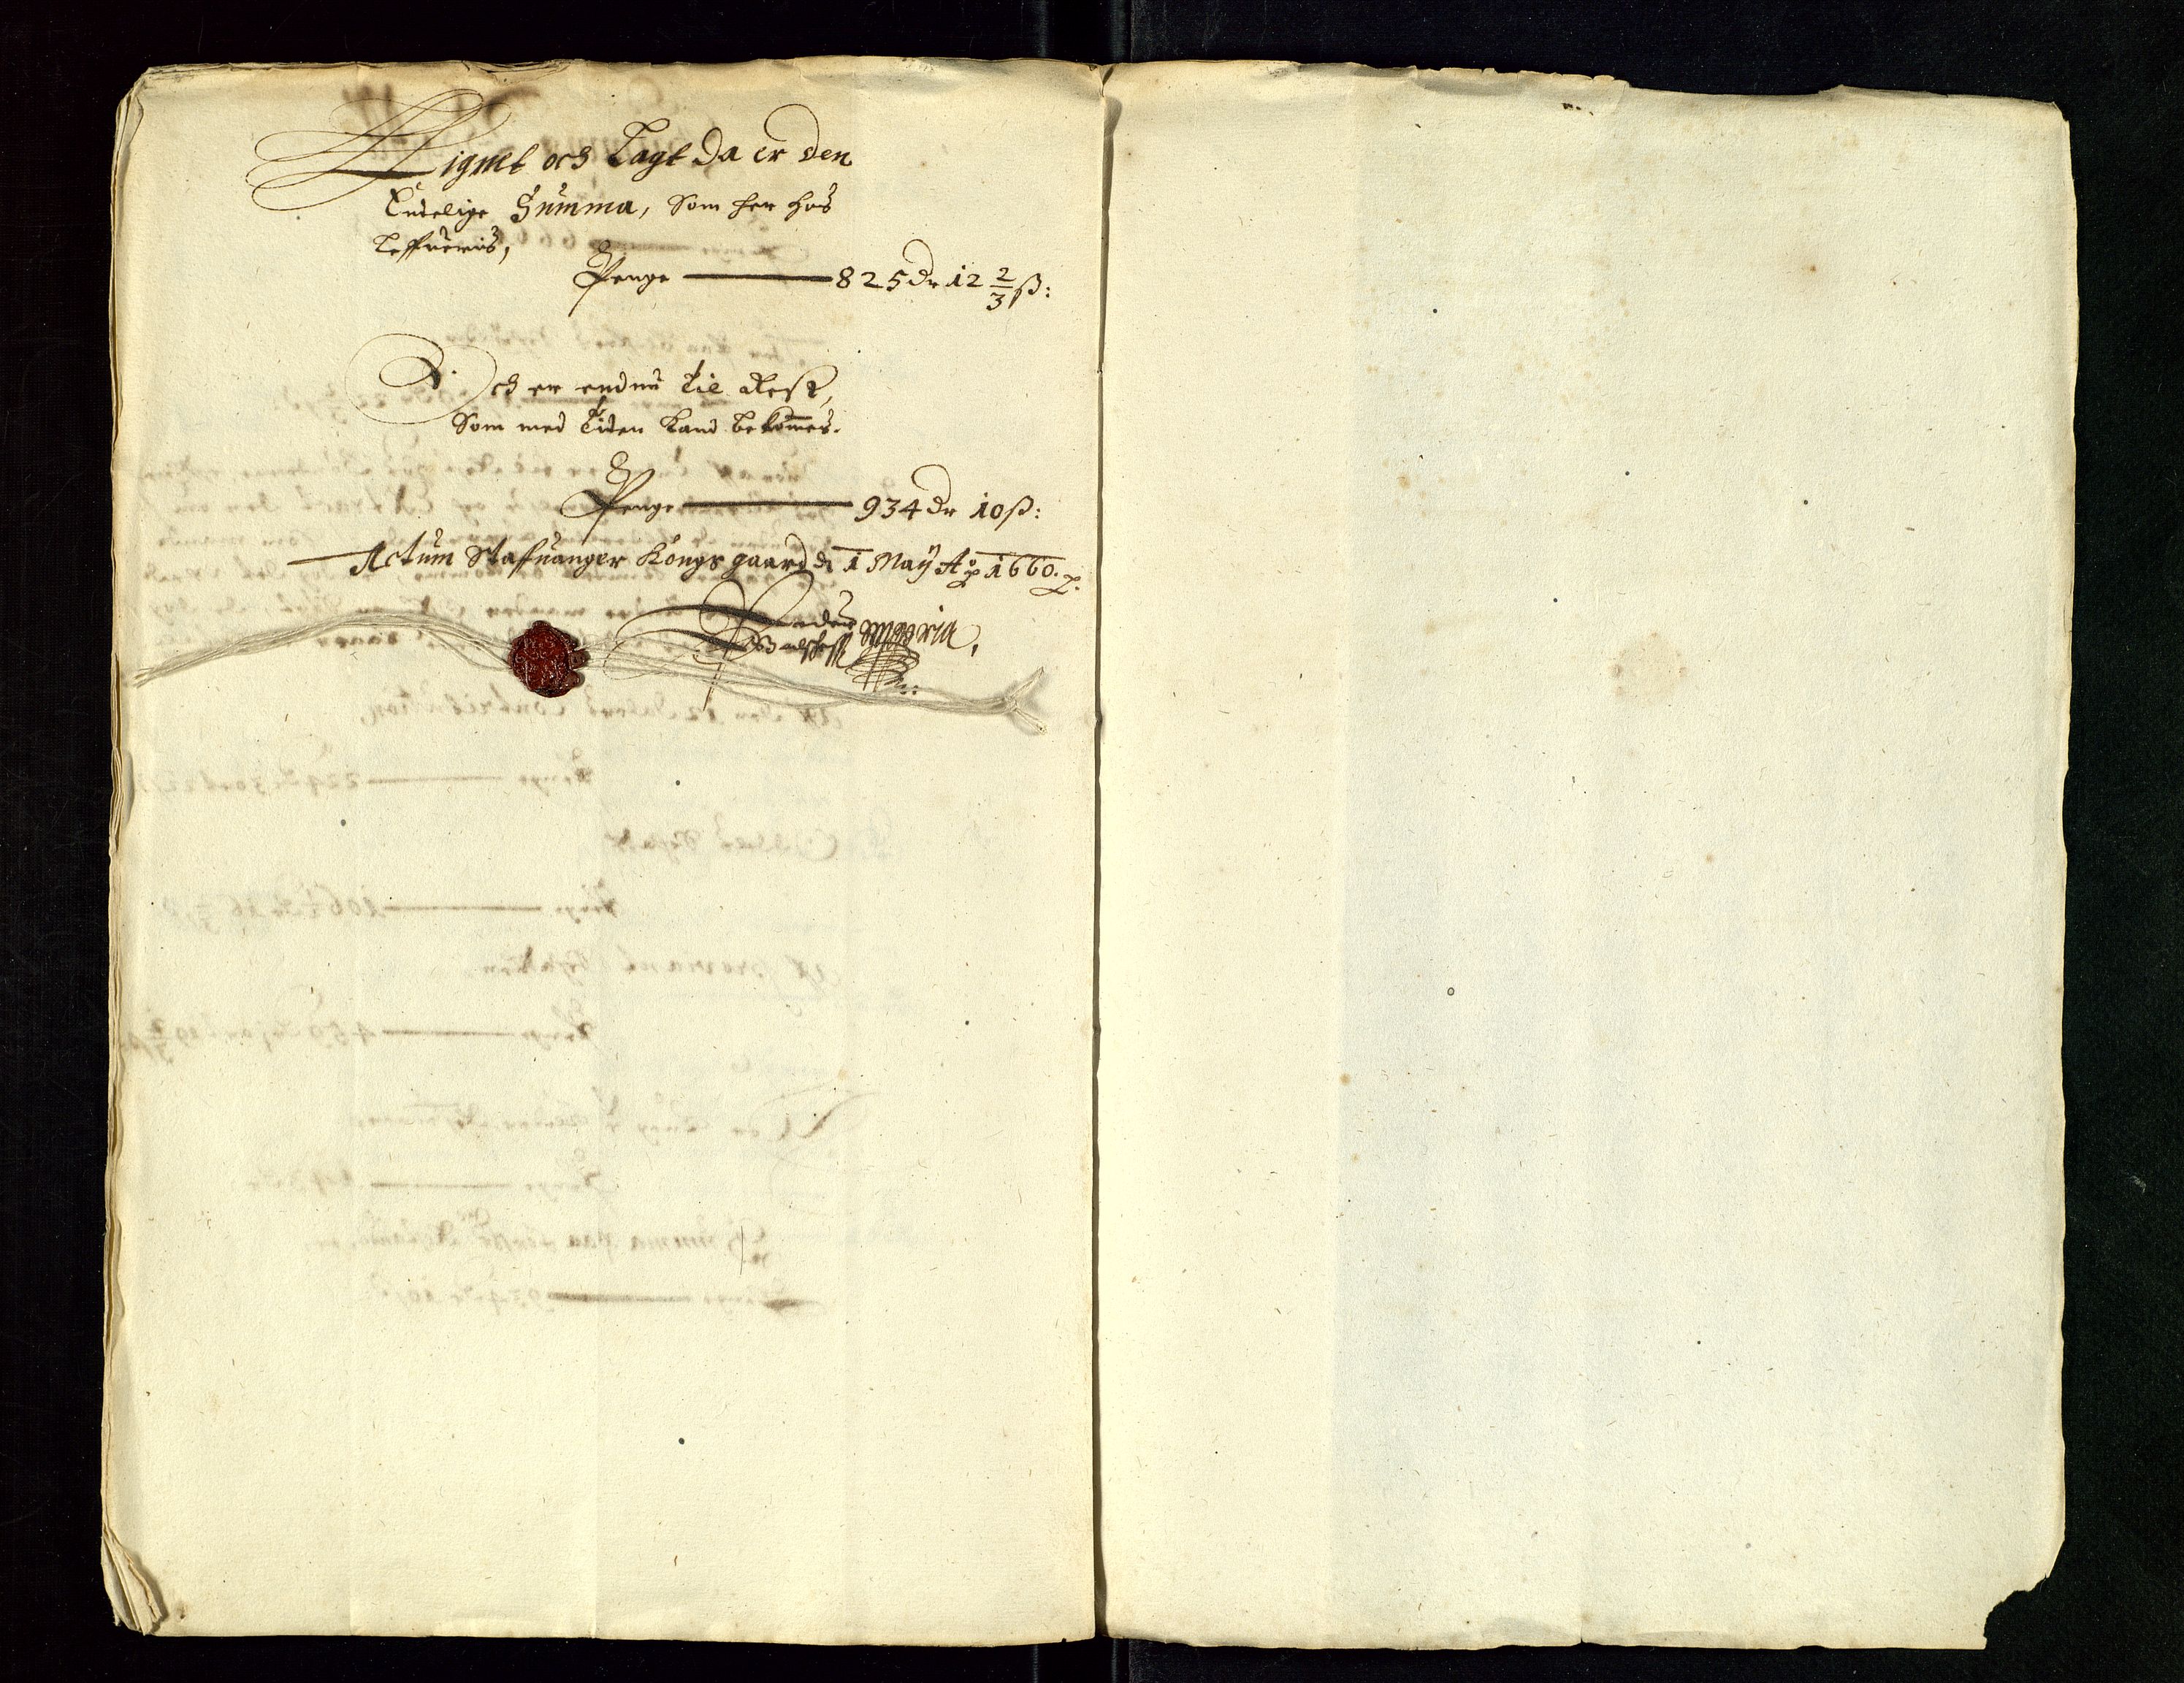 Lignet och Lagt da er den
Endelige Summa, Som her hos
Leffueris,
Penge 825 dr 12 2/3 ß:
Och er endnu til Rest,
Som med Tiden kand bekomes.
Penge 934 dr 10 ß:
Actum Staffuanger Kongs gaard d 1 Maÿ Ao 1660.